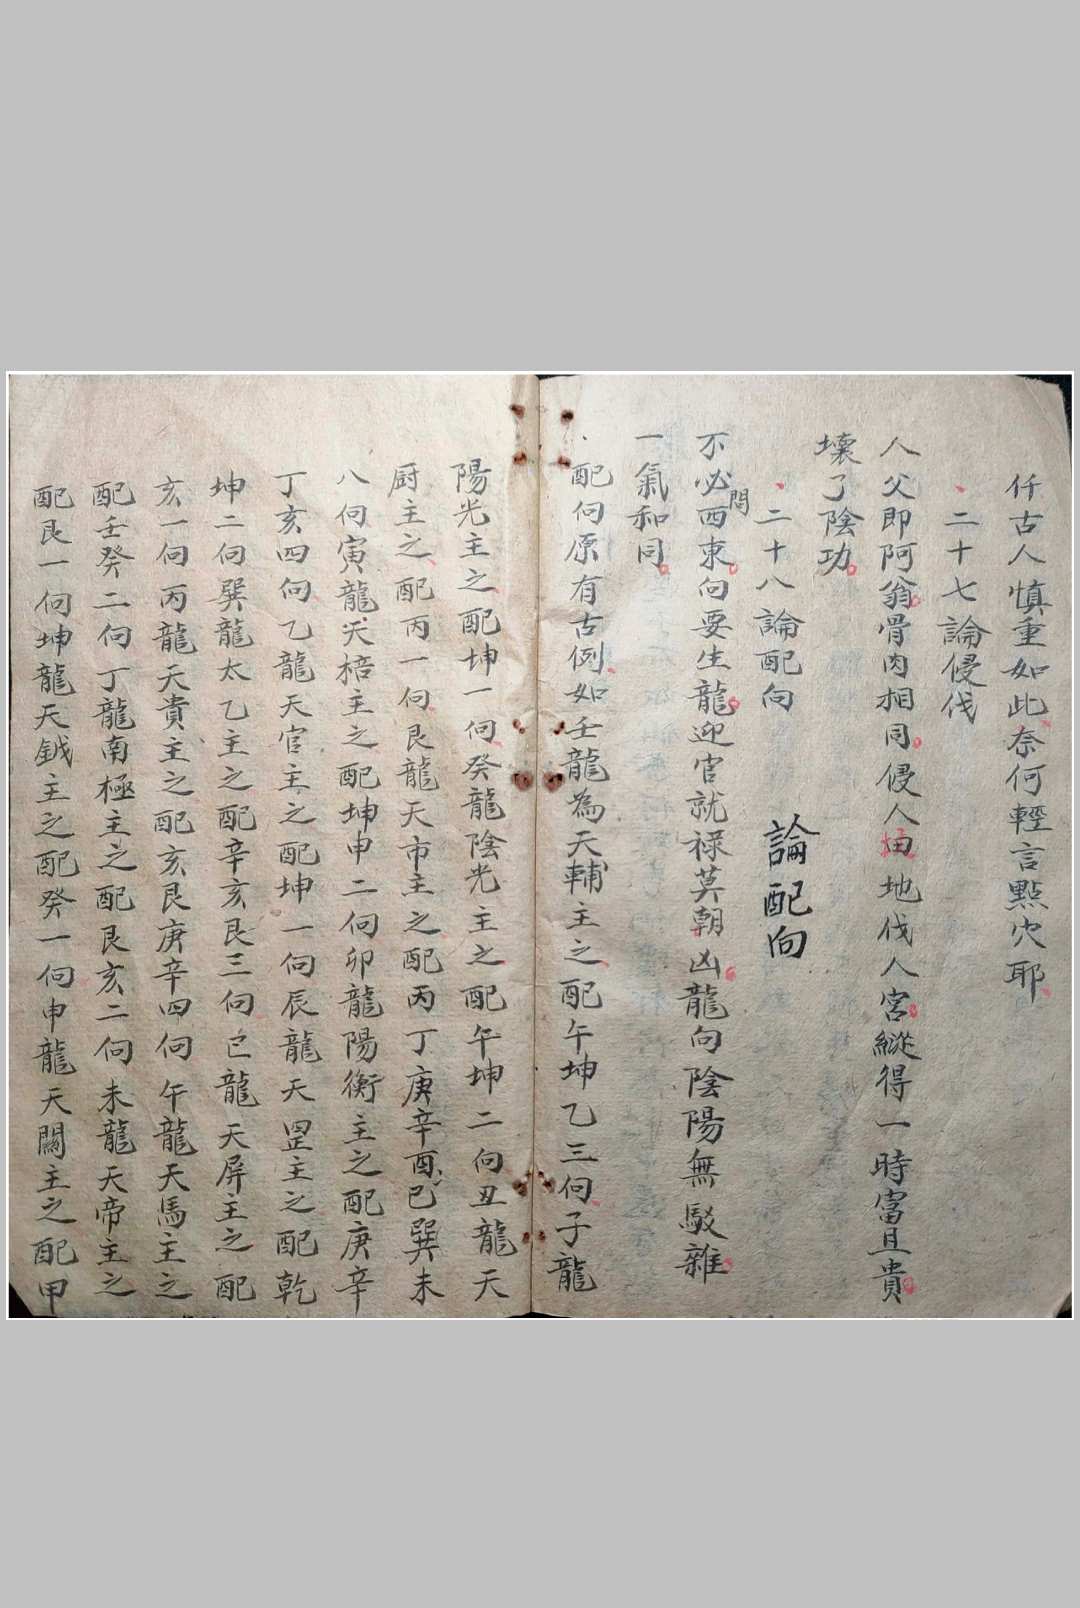 仟古人慎重如此奈何輕言點穴耶
二十七論侵伐
人父即阿翁骨肉相同侵人田地伐人宮縱得一時富且貴
壞了陰功
二十八論配向
論配向
不必問西東向要生龍迎官就祿莫朝凶龍向陰陽無駁雜
一氣和同
配向原有古例如壬龍為天輔主之配午坤乙三向子龍
陽光主之配坤一向癸龍陰光主之配午坤二向丑龍天
厨主之配丙一向艮龍天市主之配丙丁庚辛酉巳巽未
八向寅龍天棓主之配坤申二向卯龍陽衡主之配庚辛
丁亥四向乙龍天官主之配坤一向辰龍天罡主之配乾
坤二向巽龍太乙主之配辛亥艮三向巳龍天屏主之配
亥一向丙龍天貴主之配亥艮庚辛四向午龍天馬主之
配壬癸二向丁龍南極主之配艮亥二向未龍天帝主之
配艮一向坤龍天鉞主之配癸一向申龍天關主之配甲